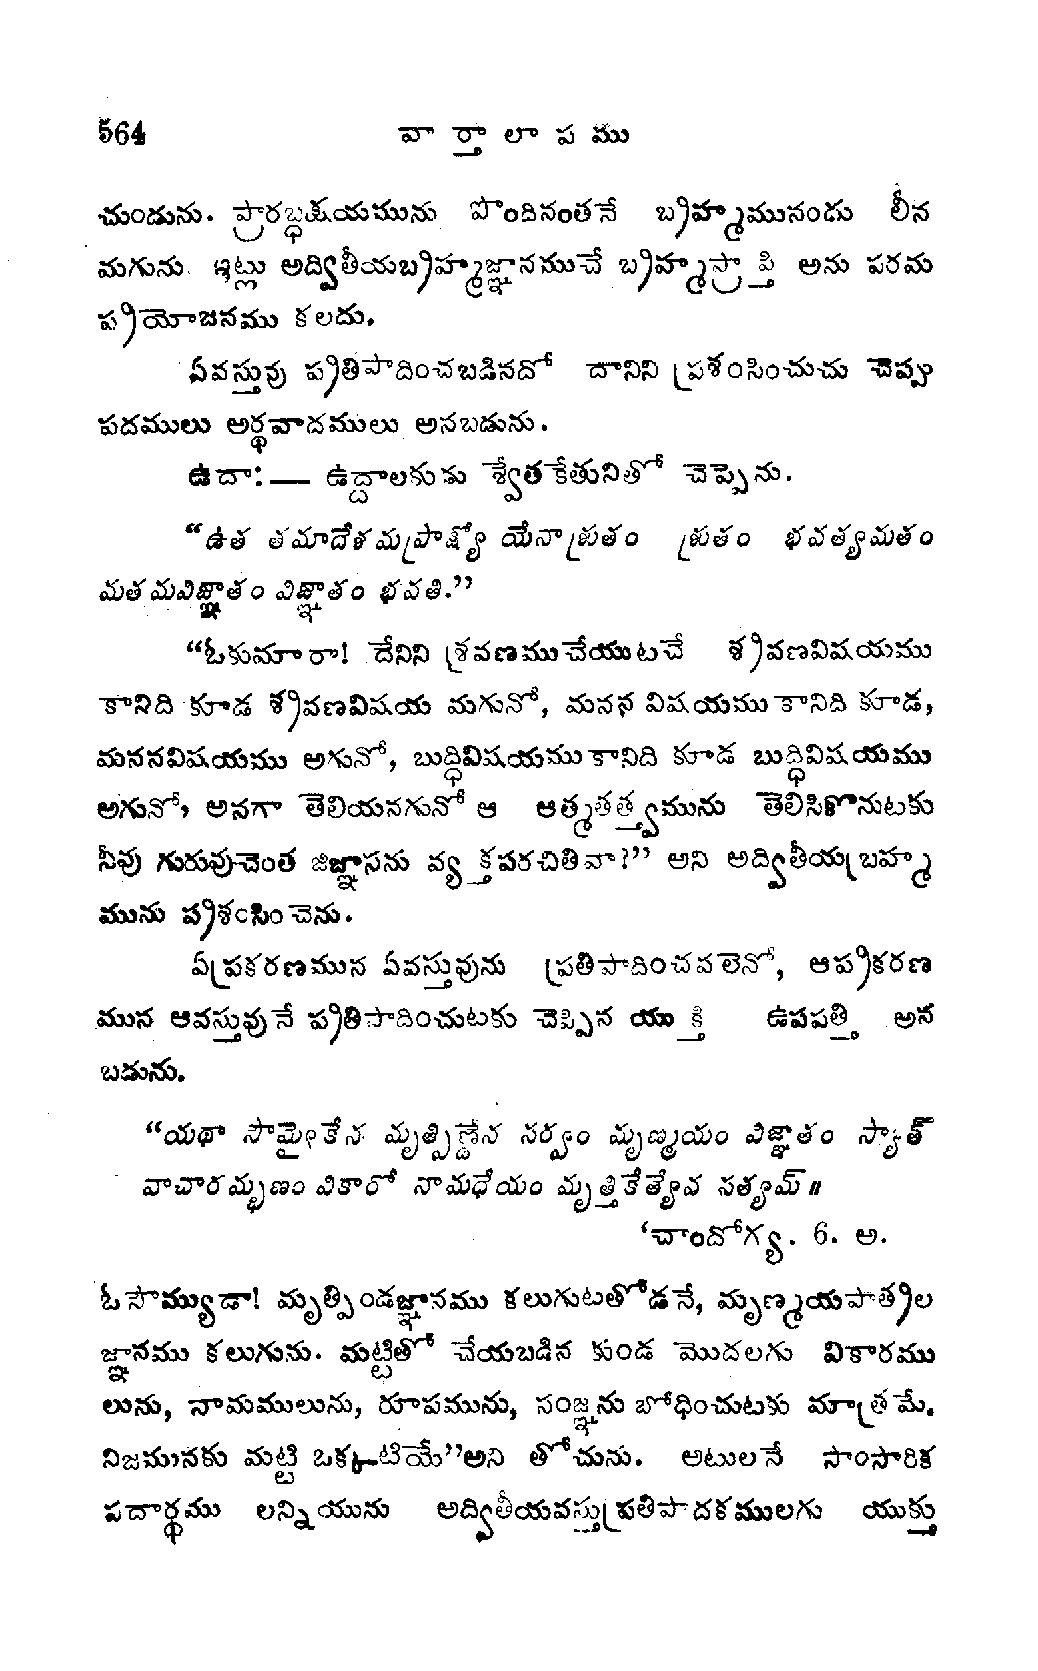 564 వార్తాలాపము
చుండును. ప్రారబ్ధక్షయమును పొందినంతనే బ్రహ్మమునందు లీన
మగును. ఇట్లు అద్వితీయబ్రహ్మజ్ఞానముచే బ్రహ్మప్రాప్తి అను పరమ
ప్రయోజనము కలదు.
ఏవస్తువు ప్రతిపాదించబడినదో దానిని ప్రశంసించుచు చెప్పు
పదములు అర్థవాదములు అనబడును.
ఉదా:— ఉద్దాలకుడు శ్వేతకేతునితో చెప్పెను.
“ఉత తమాదేశమప్రాక్ష్యో యేనాశ్రుతం శ్రుతం భవత్యమతం
మతమవిజ్ఞాతం విజ్ఞాతం భవతి.”
“ఓకుమారా! దేనిని శ్రవణముచేయుటచే శ్రవణవిషయము
కానిది కూడ శ్రవణవిషయ మగునో, మనన విషయముకానిది కూడ,
మననవిషయము అగునో, బుద్ధివిషయముకానిది కూడ బుద్ధివిషయము
అగునో, అనగా తెలియనగునో ఆ ఆత్మతత్త్వమును తెలిసికొనుటకు
నీవు గురువుచెంత జిజ్ఞాసను వ్యక్తపరచితివా?” అని అద్వితీయబ్రహ్మ
మును ప్రశంసించెను.
ఏప్రకరణమున ఏవస్తువును ప్రతిపాదించవలెనో, ఆప్రకరణ
మున ఆవస్తువునే ప్రతిపాదించుటకు చెప్పిన యుక్తి ఉపపత్తి అన
బడును.
“యథా సౌమ్యైకేన మృత్పిణ్డేన సర్వం మృణ్మయం విజ్ఞాతం స్యాత్
వాచారమ్భణం వికారో నామధేయం మృత్తికేత్యేవ సత్యమ్॥
‘చాందోగ్య. 6. అ.
ఓసౌమ్యుడా! మృత్పిండజ్ఞానము కలుగుటతోడనే, మృణ్మయపాత్రల
జ్ఞానము కలుగును. మట్టితో చేయబడిన కుండ మొదలగు వికారము
లును, నామములును, రూపమును, సంజ్ఞను బోధించుటకు మాత్రమే.
నిజమునకు మట్టి ఒక్కటియే”అని తోచును. అటులనే సాంసారిక
పదార్థము లన్నియును అద్వితీయవస్తుప్రతిపాదకములగు యుక్తు